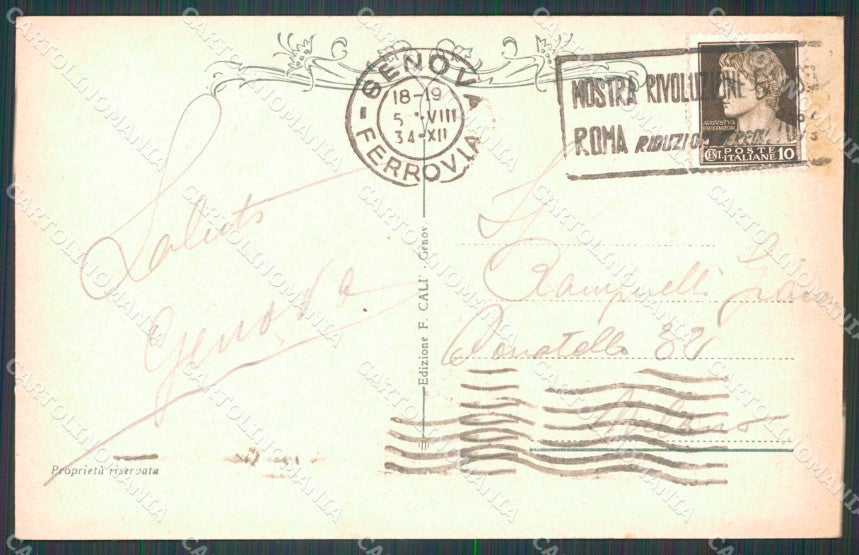 GENOVA
18-19
5·VIII
34·XII
FERROVIA
MOSTRA RIVOLUZIONE
ROMA RIDUZIO
AUGVSTVS
IMPERATOR
POSTE
ITALIANE
CENT. 10
Saluti
Genova
Edizione F. CALI' - Genov
Donatello 82
Milano
Proprietà riservata
CARTOLINOMANIA